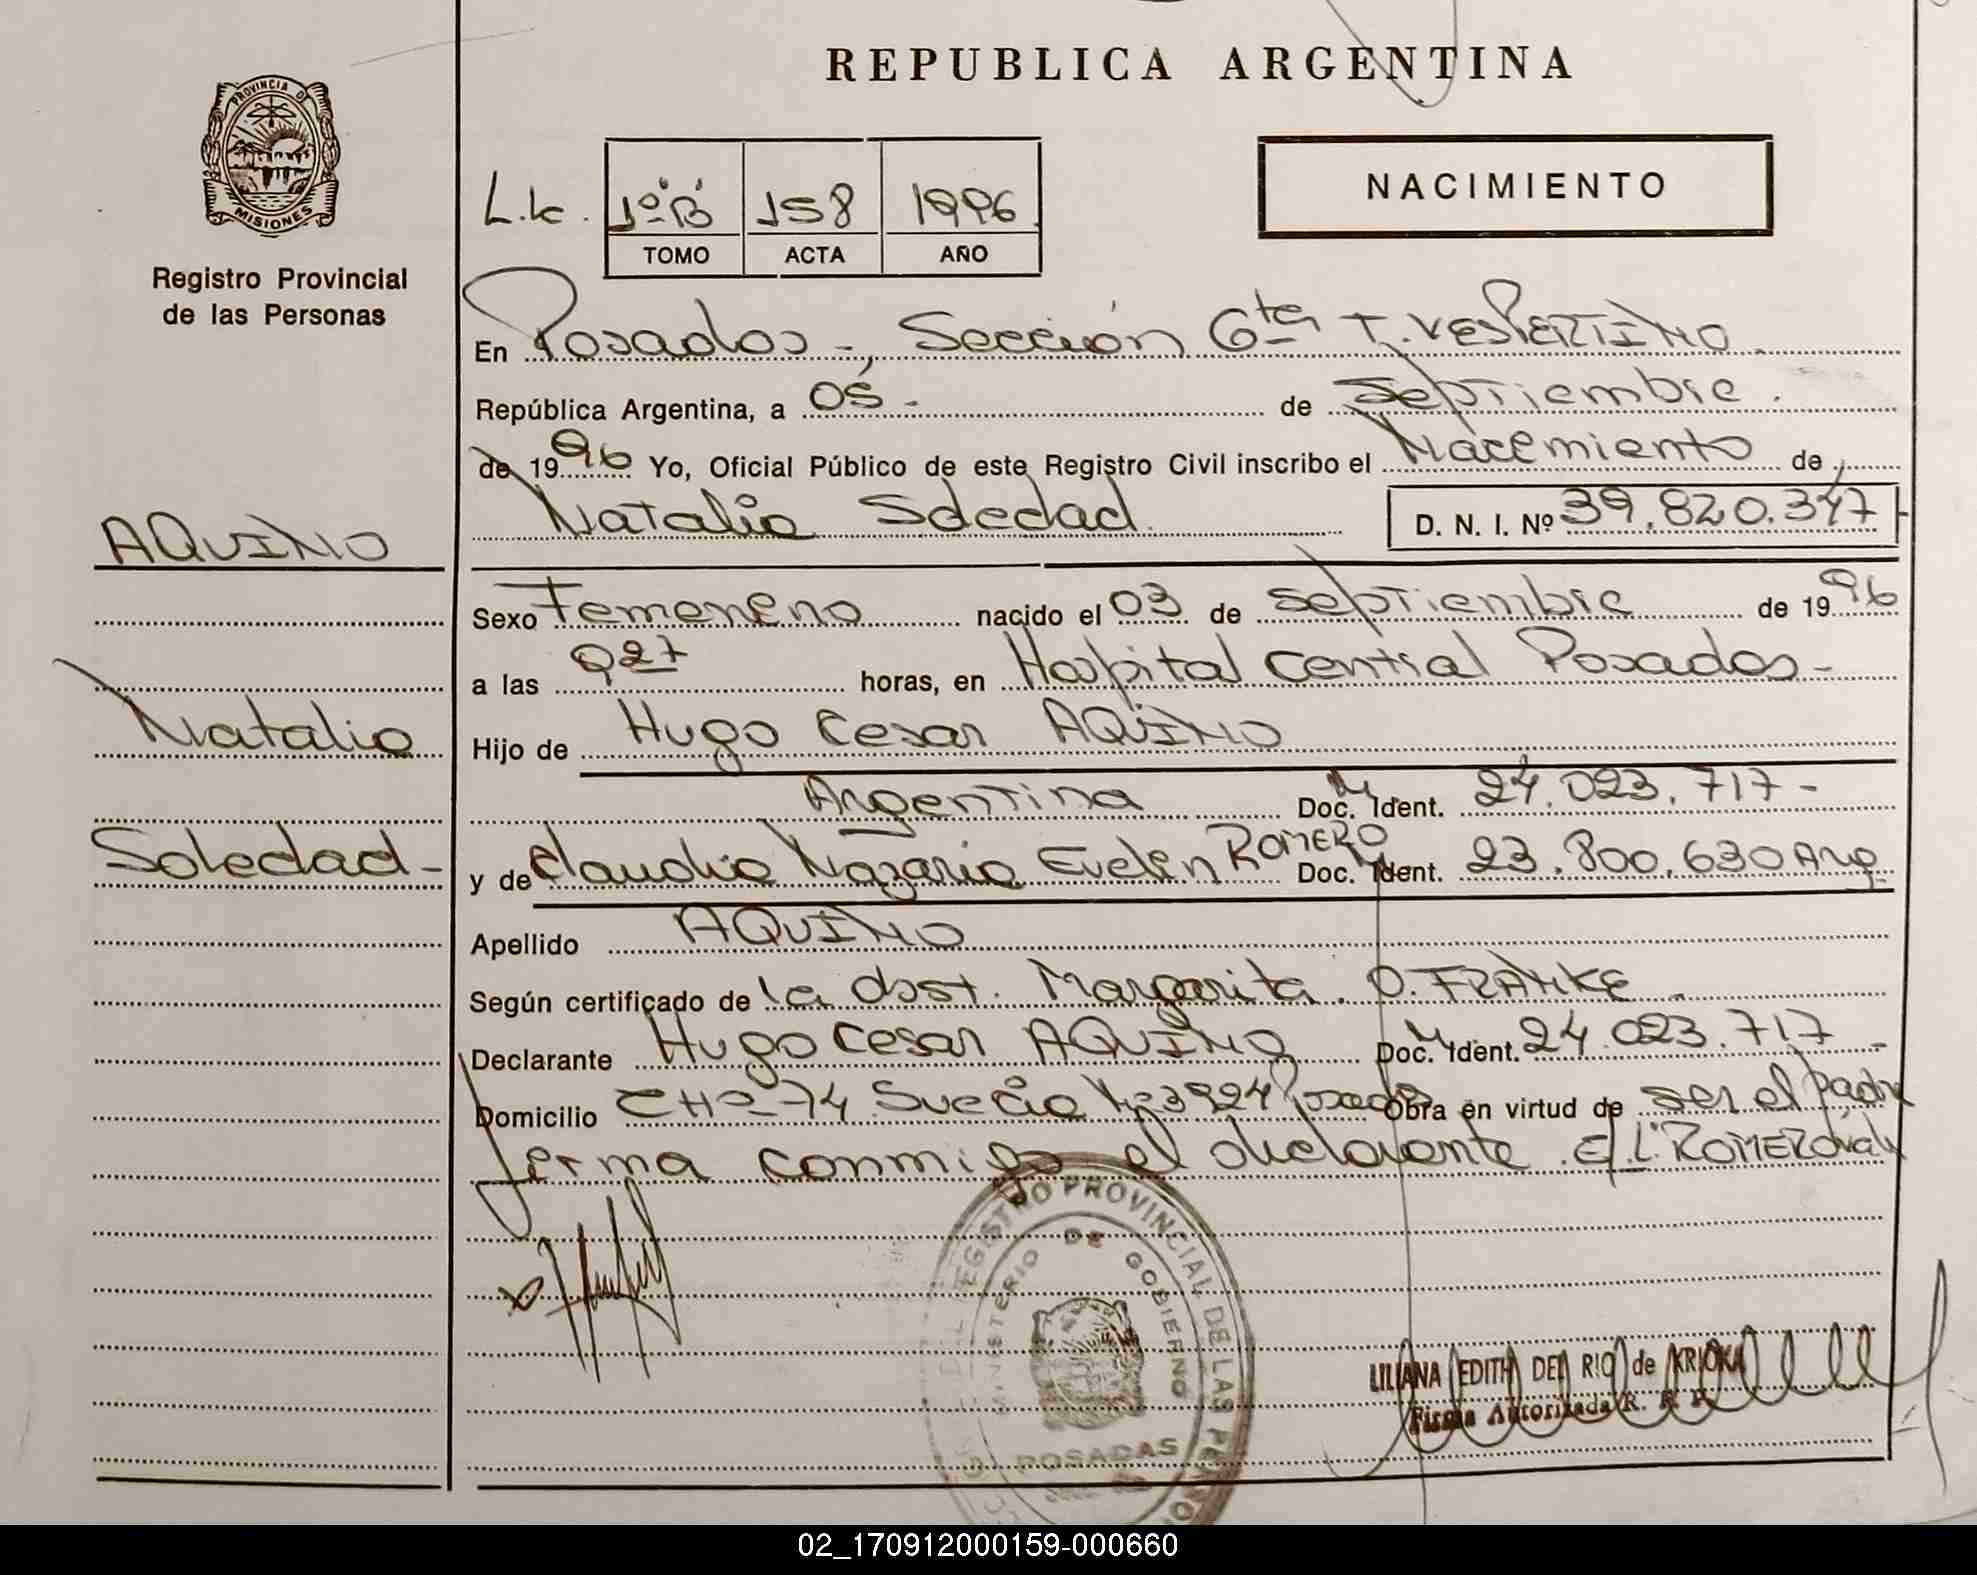 REPUBLICA ARGENTINA
PROVINCIA D
MISIONES
Registro Provincial
de las Personas
L.k. 1º"B" 158 1996
TOMO ACTA AÑO
NACIMIENTO
En Posadas -, Sección 6ta T. VESPERTINO
República Argentina, a 05 - de septiembre .
de 1996 Yo, Oficial Público de este Registro Civil inscribo el Nacimiento de
Natalia Soledad D. N. I. Nº 39.820.347
AQUINO
Natalia
Soledad -
Sexo Femenino nacido el 03 de septiembre de 1996
a las 027 horas, en Hospital Central Posadas -
Hijo de Hugo Cesar AQUINO
Argentina Doc. Ident. 24.023.717 -
y de Claudia Nazaria Evelin ROMERO Doc. Ident. 23.800.630 Arg
Apellido AQUINO
Según certificado de la obst. Margarita . O. FRANKE
Declarante Hugo Cesar AQUINO Doc. Ident. 24.023.717 -
Domicilio CHº 74 Suecia Nº 3924 Posadas Obra en virtud de ser el padre
firma conmigo el declarante . E/L: ROMERO vale
REGISTRO PROVINCIAL DE LAS PERSO
MINISTERIO DE GOBIERNO
POSADAS
LILIANA EDITH DEL RIO de KRIOKA
Firma Autorizada R. P. P.
02_170912000159-000660